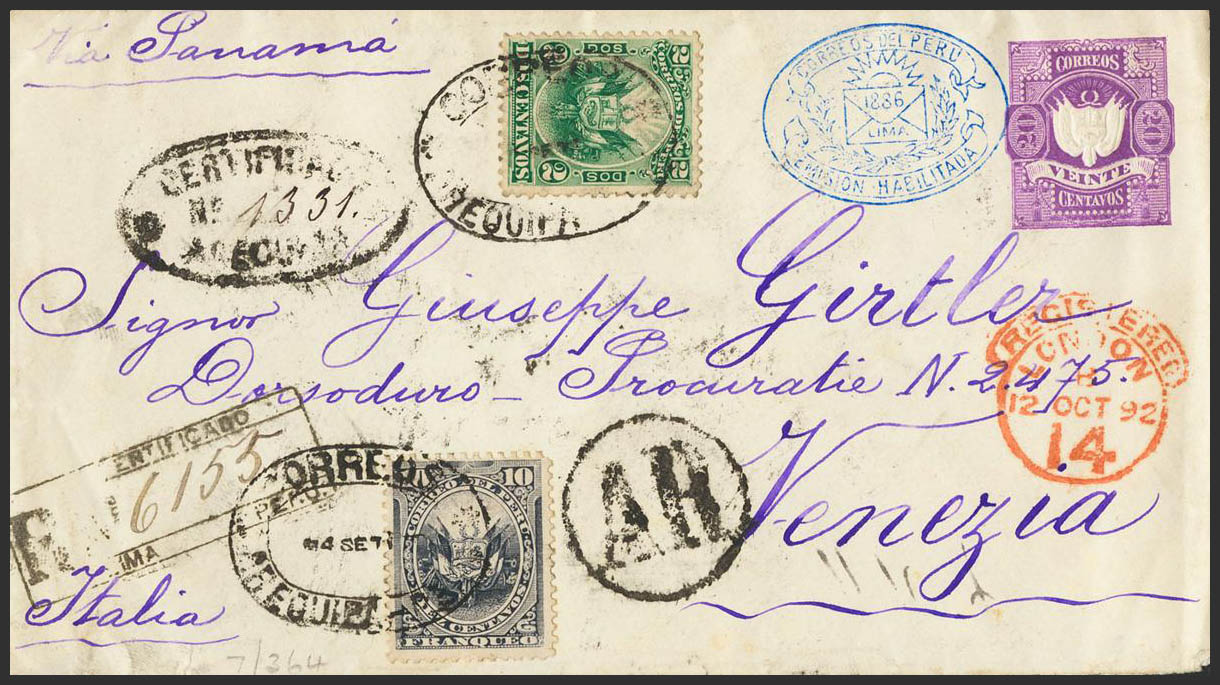 Via Panamá
CORREOS DEL PERU
1886
LIMA
EMISIÓN HABILITADA
CORREOS
20 20
VEINTE
CENTAVOS
2 DOS 2
DIES CENTAVOS
CORREOS DEL PERU
2 DOS 2
AREQUIPA
CERTIFICADO
Nº 1331.
AREQUIPA
Signor Giuseppe Girtler
Dorsoduro - Procuratie N. 2475.
Venezia
Italia
REGISTERED
LONDON
12 OCT 92
14
CERTIFICADO
R 6155
LIMA PERU
CORREOS
SET
AREQUIPA
10
CORREO DEL PERU
DIEZ CENTAVOS
FRANQUEO
AR
7/364